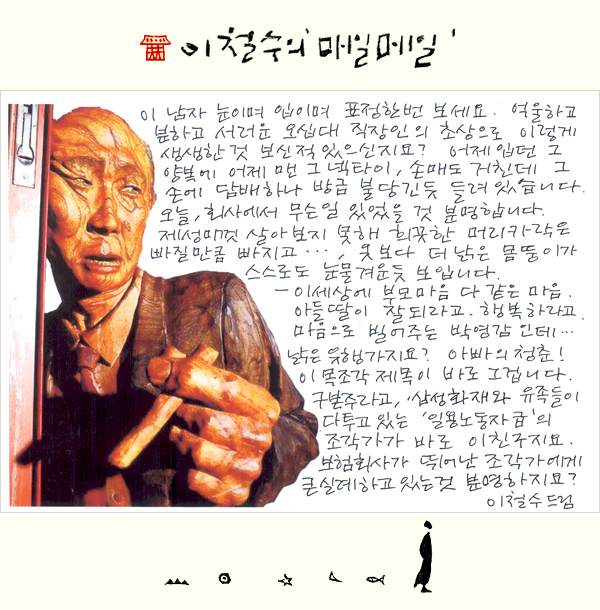 이철수의 '매일메일'
이 남자 눈이며 입이며 표정한번 보세요. 억울하고
분하고 서러운 오십대 직장인의 초상으로 이렇게
생생한것 보신적 있으신지요? 어제 입던 그
양복에 어제 맨 그 넥타이, 손매도 거친데 그
손에 담배하나 방금 불 당긴듯 들려 있습니다.
오늘, 회사에서 무슨일 있었을 것 분명합니다.
제성미껏 살아보지 못해 희끗한 머리카락은
빠질만큼 빠지고 …, 옷보다 더 낡은 몸뚱이가
스스로도 눈물겨운듯 보입니다.
— 이세상에 부모마음 다 같은 마음.
아들 딸이 잘되라고. 행복하라고.
마음으로 빌어주는 박영감 인데…
낡은 유행가지요? 아빠의 청춘!
이 목조각 제목이 바로 그겁니다.
구본주라고, '삼성화재와 유족들이
다투고 있는 '일용노동자급'의
조각가가 바로 이친구지요.
보험회사가 뛰어난 조각가에게
큰실례하고 있는것 분명하지요?
이철수 드림